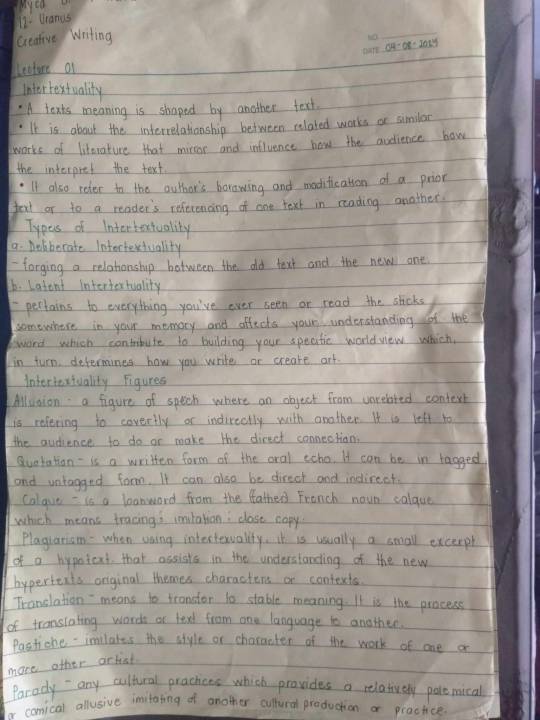 Myca
12- Uranus
Creative Writing
NO.
DATE 04-08-2024
Lecture 01
Intertextuality
• A texts meaning is shaped by another text.
• It is about the interrelationship between related works or similar
works of literature that mirror and influence how the audience how
the interpret the text.
• It also refer to the author's borowing and modification of a prior
text or to a reader's referencing of one text in reading another.
Types of Intertextuality
a. Deliberate Intertextuality
- forging a relationship between the old text and the new one.
b. Latent Intertextuality
- pertains to everything you've ever seen or read the sticks
somewhere in your memory and affects your understanding of the
word which contribute to building your specific worldview which,
in turn, determines how you write or create art.
Intertextuality Figures
Allusion - a figure of spech where an object from unrelated context
is refering to covertly or indirectly with another. It is left to
the audience to do or make the direct connection.
Quotation - is a written form of the oral echo. It can be in tagged
and untagged form. It can also be direct and indirect.
Calque - is a loanword from the French noun calque
which means tracing; imitation; close copy.
Plagiarism - when using intertextuality, it is usually a small excerpt
of a hypotext that assists in the understanding of the new
hypertexts original themes characters or contexts.
Translation - means to transfer to stable meaning. It is the process
of translating words or text from one language to another.
Pastiche - imitates the style or character of the work of one or
more other artist.
Parady - any cultural practices which provides a relatively polemical
or comical allusive imitating of another cultural production or practice.